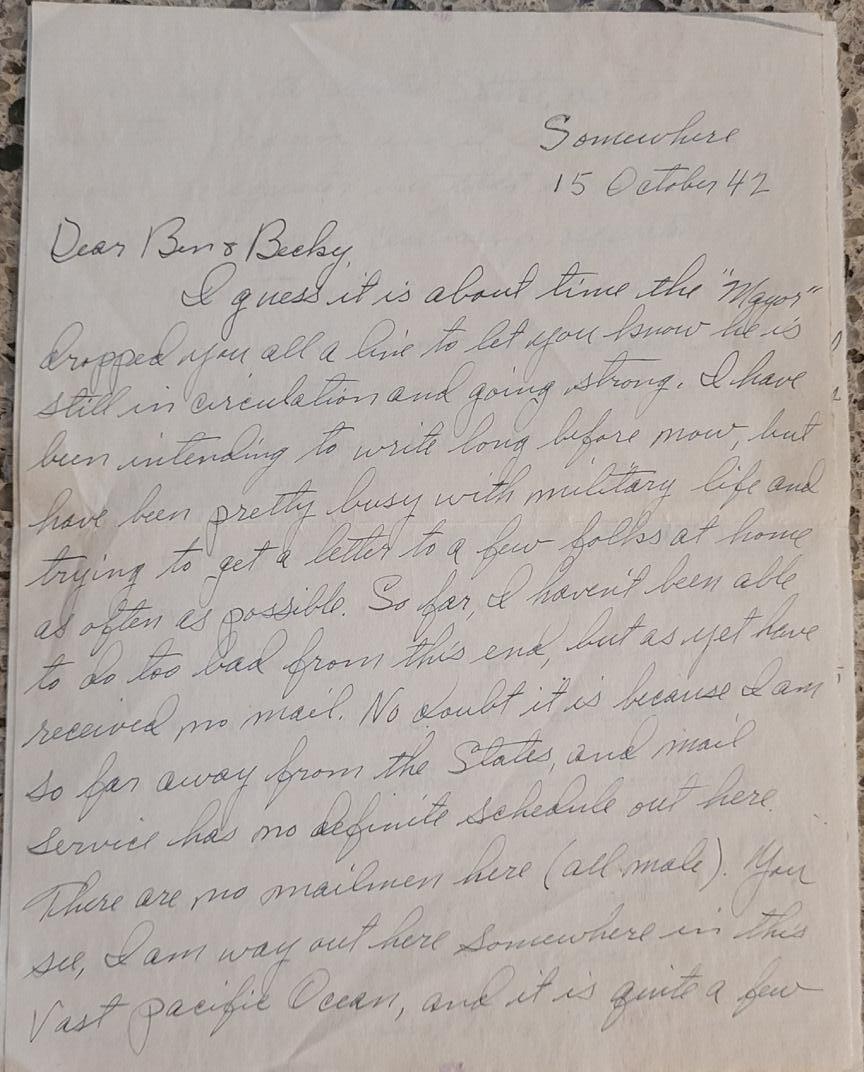 Somewhere
15 October 42
Dear Ben & Becky,
I guess it is about time the "Mayor"
dropped you all a line to let you know he is
still in circulation and going strong. I have
been intending to write long before now, but
have been pretty busy with military life and
trying to get a letter to a few folks at home
as often as possible. So far, I haven't been able
to do too bad from this end, but as yet have
received no mail. No doubt it is because I am
so far away from the States, and mail
service has no definite schedule out here.
There are no mailmen here (all male). You
see, I am way out here somewhere in this
Vast pacific Ocean, and it is quite a few